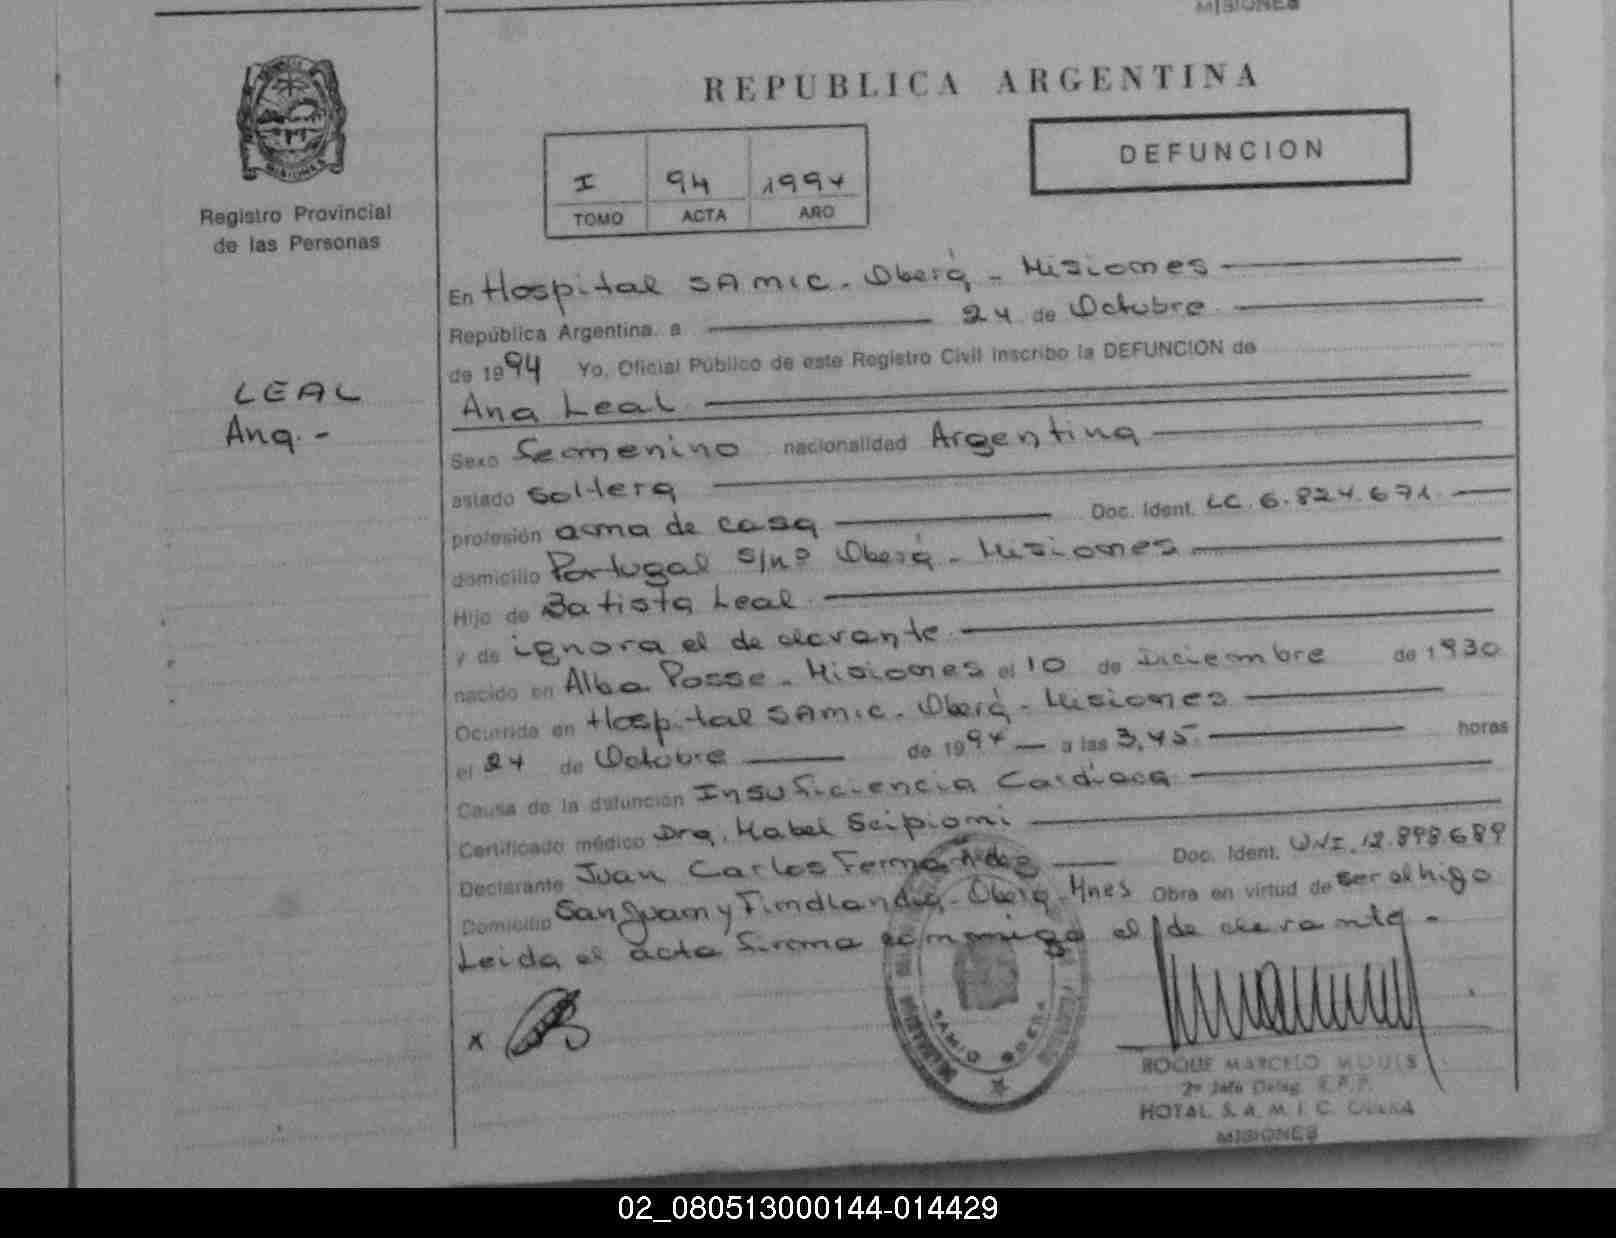 MISIONES
REPUBLICA ARGENTINA
DEFUNCION
I 94 1994
TOMO ACTA AÑO
MISIONES
Registro Provincial
de las Personas
LEAL
Ana.-
En Hospital SAMIC. Oberá - Misiones
República Argentina, a 24 de Octubre
de 1994 Yo, Oficial Público de este Registro Civil inscribo la DEFUNCION de
Ana Leal
Sexo Femenino nacionalidad Argentina
estado Soltera
profesión ama de casa Doc. Ident. LC. 6.824.671
domicilio Portugal S/nº Oberá - Misiones
Hijo de Batista Leal
y de ignora el declarante
nacido en Alba Posse - Misiones el 10 de Diciembre de 1930
Ocurrida en Hospital SAMIC. Oberá - Misiones
el 24 de Octubre de 1994 a las 3,45 horas
Causa de la defunción Insuficiencia Cardíaca
Certificado médico Dra. Mabel Scipioni
Declarante Juan Carlos Fernández Doc. Ident. DNI. 12.898.689
Domicilio San Juan y Findlandia - Oberá - Mnes Obra en virtud de ser el higo
Leida el acta firma conmigo el declarante -
x
SAMIC OBERA
ROQUE MARCELO
2º Jefe Deleg. R.P.P.
HOTAL S. A. M. I. C. OBERA
MISIONES
02_080513000144-014429